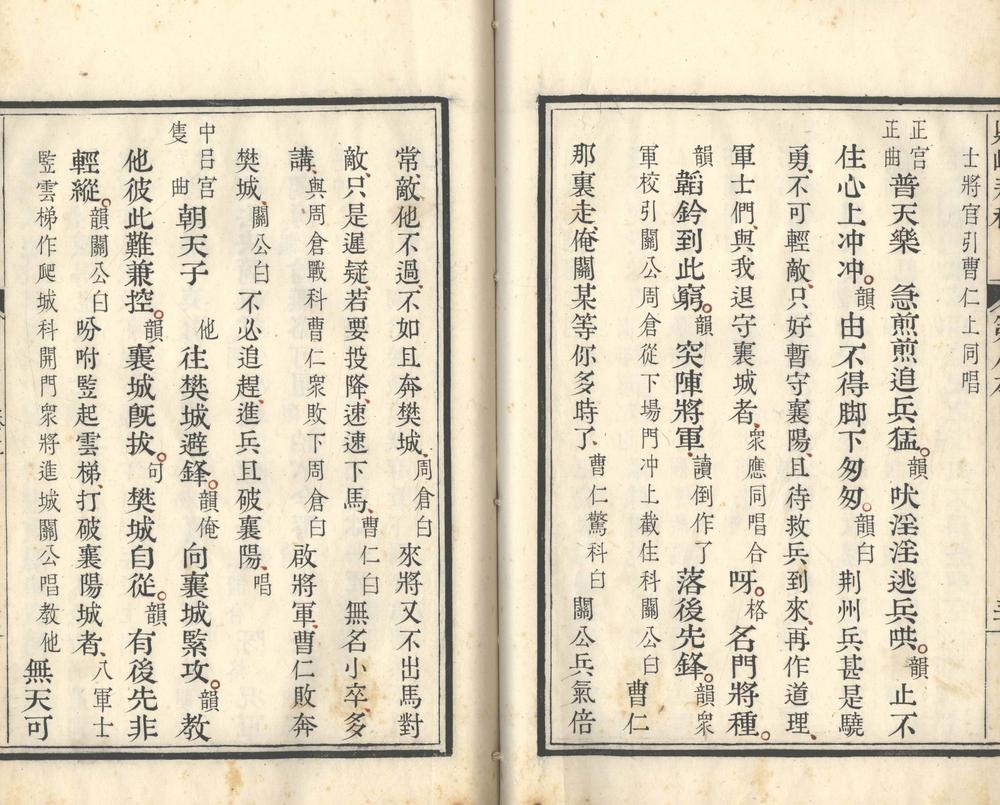 士將官引曹仁上同唱
正宮正曲普天樂　急煎煎追兵猛韻吠淫淫逃兵哄韻止不
住心上冲冲韻由不得脚下匆匆韻白荆州兵甚是驍
勇不可輕敵只好暫守襄陽且待救兵到來再作道理
軍士們與我退守襄城者衆應同唱合呀格名門將種
韻韜鈐到此窮韻突陣將軍讀倒作了落後先鋒韻衆
軍校引關公周倉從下場門冲上截住科關公白曹仁
那裏走俺關某等你多時了曹仁驚科白關公兵氣倍
常敵他不過不如且奔樊城周倉白來將又不出馬對
敵只是遲疑若要投降速速下馬曹仁白無名小卒多
講與周倉戰科曹仁衆敗下周倉白啟將軍曹仁敗奔
樊城關公白不必追趕進兵且破襄陽唱
中呂宮隻曲朝天子　他往樊城避鋒韻俺向襄城緊攻韻教
他彼此難兼控韻襄城旣拔句樊城自從韻有後先非
輕縱韻關公白吩咐豎起雲梯打破襄陽城者八軍士
豎雲梯作爬城科開門衆將進城關公唱教他無天可